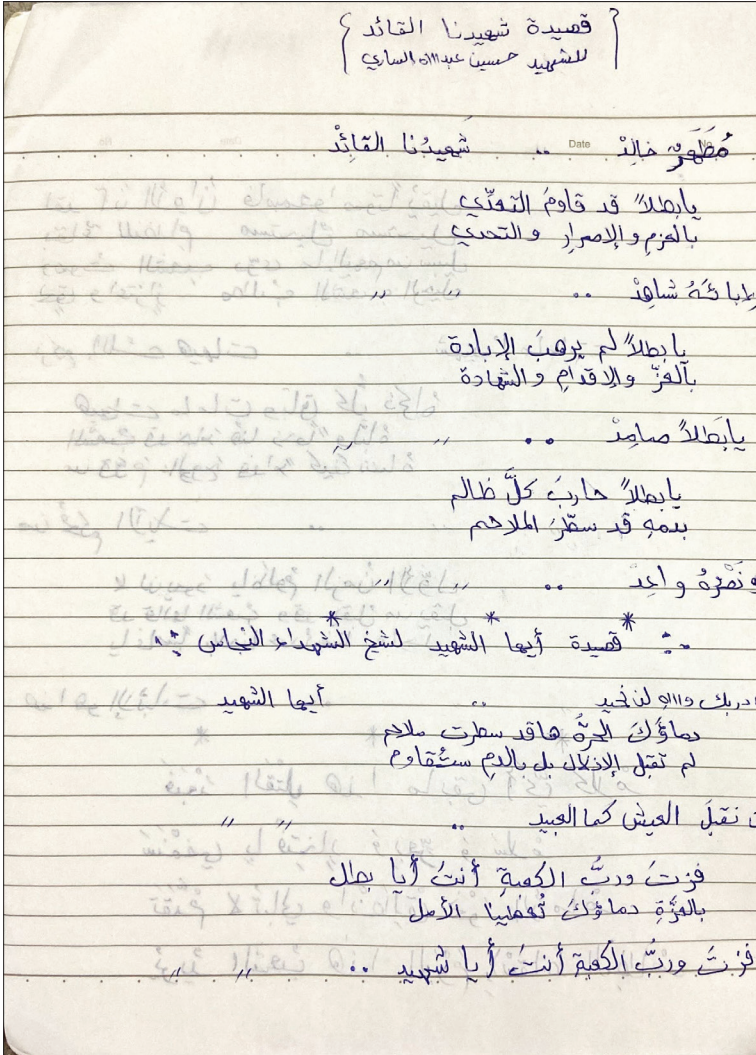 { قصيدة شهيدنا القائد }
{ للشهيد حسين عبدالله الساري }
مُطَهَرٌ خالِدْ .. شَهيدُنا القَائِدْ
Date No
يابطلاً قد قاومَ التعدّي
بالعزمِ والإصرارِ والتحدي
لإبائهُ شاهِدْ .. " "
يابطلاً لم يرهبَ الإبادة
بالعزّ والإقدامِ والشهادة
يابَطلاً صامِدْ .. " "
يابطلاً حاربَ كلَّ ظالم
بدمهِ قد سطّرَ الملاحم
نَصْرُهُ واعِدْ .. " "
* * *
قصيدة أيها الشهيد لشيخ الشهداء النجاس
دربك والله لن نحيد .. أيها الشهيد
دماؤكَ الحرَّةُ هاقد سطرت ملاحم
لم تقبل الإذلال بل بالدمِ ستُقاوم
نقبلَ العيش كما العبيد .. " "
فزتَ وربُّ الكعبةِ أنتَ أيا بطل
بالعزّةِ دماؤكَ تُعطينا الأمل
فزتَ وربُّ الكعبةِ أنتَ أيا شهيد .. " "